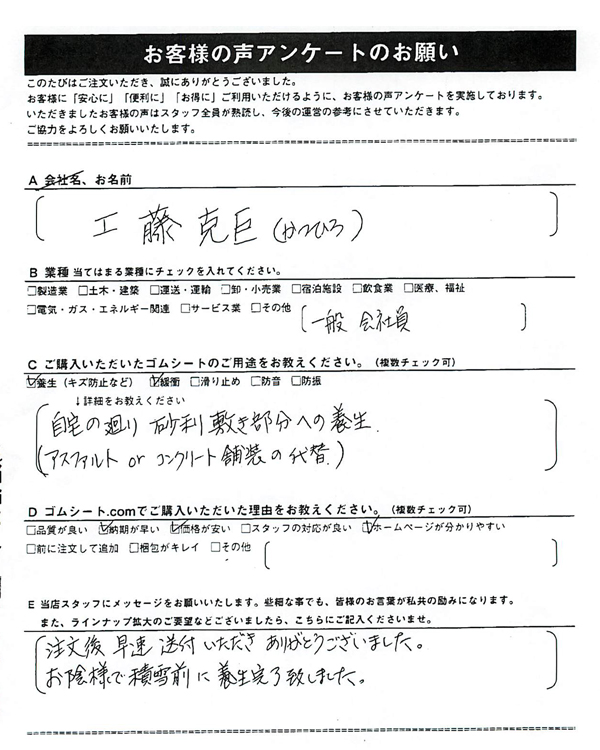 お客様の声アンケートのお願い
このたびはご注文いただき、誠にありがとうございました。
お客様に「安心に」「便利に」「お得に」ご利用いただけるように、お客様の声アンケートを実施しております。
いただきましたお客様の声はスタッフ全員が熟読し、今後の運営の参考にさせていただきます。
ご協力をよろしくお願いいたします。
A 会社名、お名前
工藤克巨(かつひろ)
B 業種 当てはまる業種にチェックを入れてください。
□製造業 □土木・建築 □運送・運輸 □卸・小売業 □宿泊施設 □飲食業 □医療、福祉
□電気・ガス・エネルギー関連 □サービス業 □その他
一般 会社員
C ご購入いただいたゴムシートのご用途をお教えください。(複数チェック可)
☑養生(キズ防止など) ☑緩衝 □滑り止め □防音 □防振
↓詳細をお教えください
自宅の廻り 砂利敷き部分への養生.
(アスファルト or コンクリート舗装の代替.)
D ゴムシート.comでご購入いただいた理由をお教えください。(複数チェック可)
□品質が良い ☑納期が早い ☑価格が安い □スタッフの対応が良い ☑ホームページが分かりやすい
□前に注文して追加 □梱包がキレイ □その他
E 当店スタッフにメッセージをお願いいたします。些細な事でも、皆様のお言葉が私共の励みになります。
また、ラインナップ拡大のご要望などございましたら、こちらにご記入くださいませ。
注文後 早速 送付いただき ありがとうございました。
お陰様で積雪前に養生完了致しました。